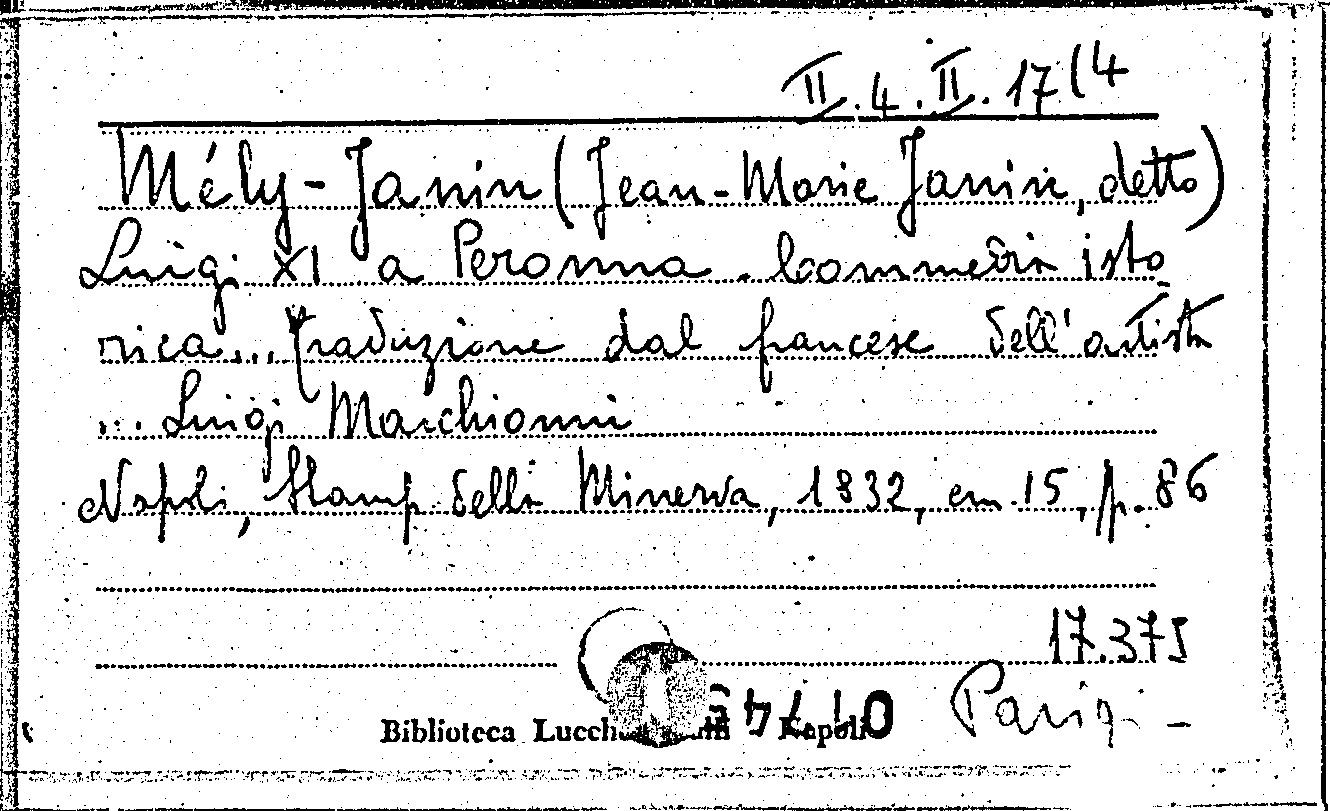 II.4.II.17(4
Mély-Janin (Jean-Marie Janin, detto)
Luigi XI a Peronna. Commedia isto
rica... Traduzione dal francese dell'artista
... Luigi Marchionni
Napoli, Stamp della Minerva, 1832, cm 15, p. 86
17.375
Parigi -
Biblioteca Napoli